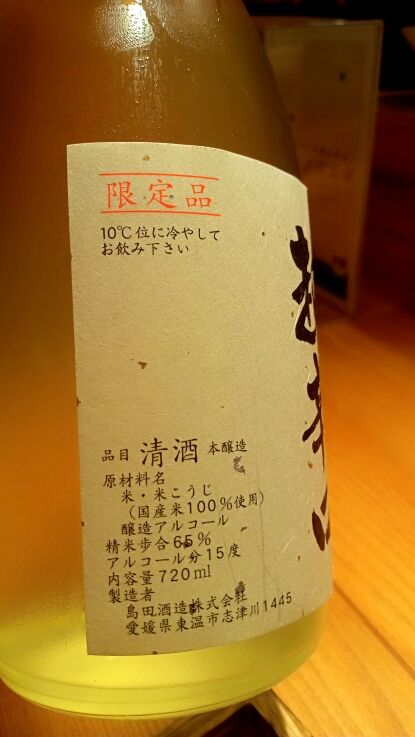 限定品
10℃位に冷やして
お飲み下さい
超辛口
品目 清酒 本醸造
原材料名
米・米こうじ
（国産米100％使用）
醸造アルコール
精米歩合65％
アルコール分15度
内容量720ml
製造者
島田酒造株式会社
愛媛県東温市志津川1445